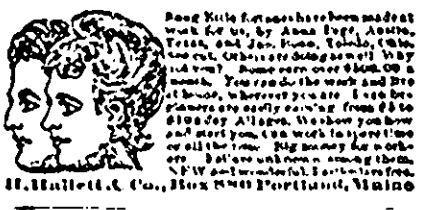 Snug little fortunes have been made at
work for us, by Anna Page, Austin,
Texas, and Jno. Bonn, Toledo, Ohio.
See cut. Others are doing as well. Why
not you? Some earn over $500.00 a
month. You can do the work and live
at home, wherever you are. Even be-
ginners are easily earning from $5 to
$10 a day. All ages. We show you how
and start you. Can work in spare time
or all the time. Big money for work-
ers. Failure unknown among them.
NEW and wonderful. Particulars free.
H. Hallett & Co., Box 880 Portland, Maine